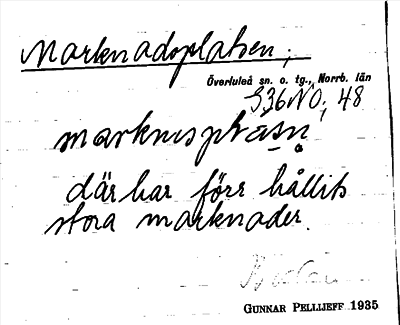 Marknadsplatsen;
Överluleå sn. o. tg., Norrb. län
S36NO; 48
marknsplásn
där har förr hållits
stora marknader.
GUNNAR PELLIJEFF 1935